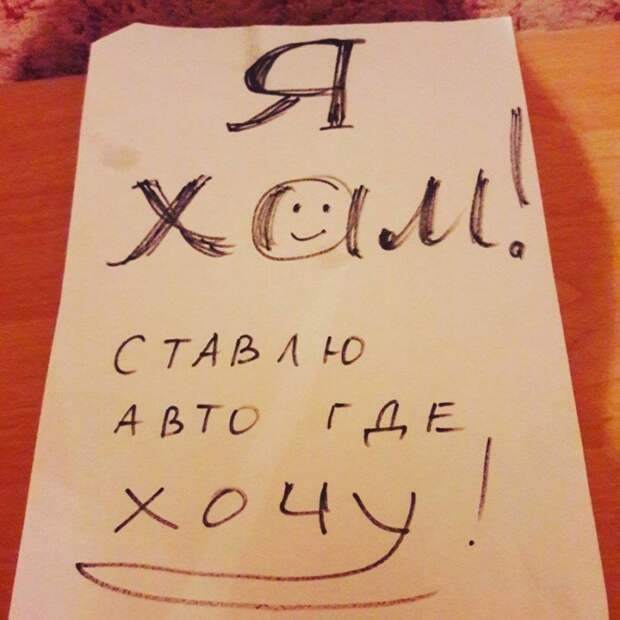 Я
хам!
СТАВЛЮ
АВТО ГДЕ
ХОЧУ!